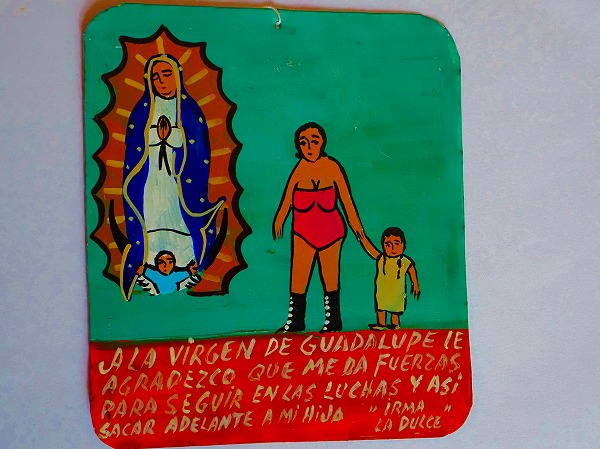 A LA VIRGEN DE GUADALUPE LE
AGRADEZCO QUE ME DA FUERZAS
PARA SEGUIR EN LAS LUCHAS Y ASI
SACAR ADELANTE A MI HIJA " IRMA
LA DULCE "